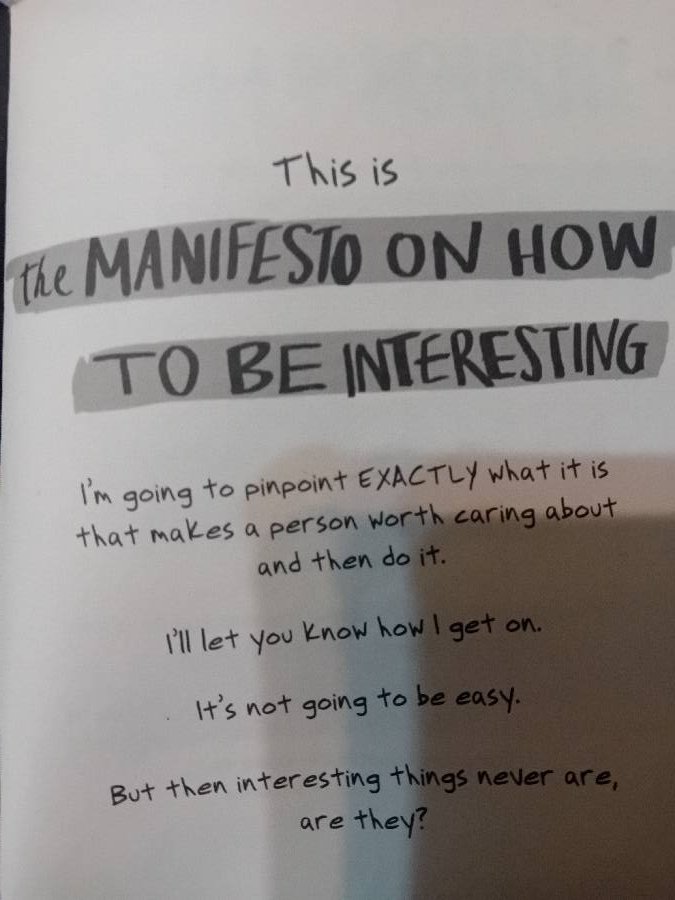 This is
the MANIFESTO ON HOW
TO BE INTERESTING
I'm going to pinpoint EXACTLY what it is
that makes a person worth caring about
and then do it.
I'll let you know how I get on.
It's not going to be easy.
But then interesting things never are,
are they?